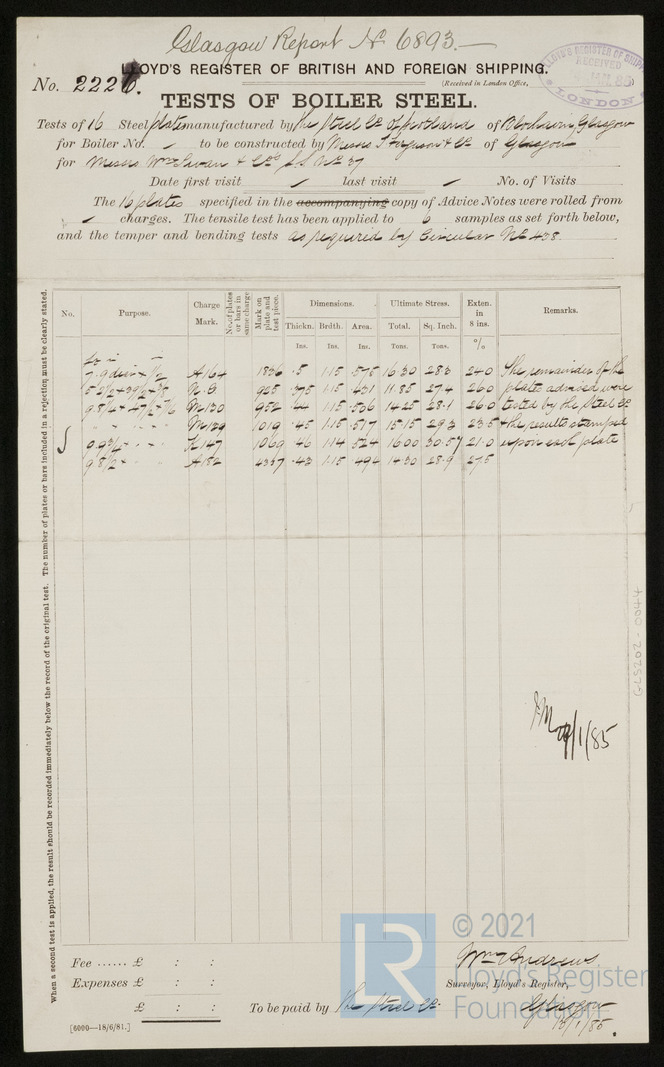 Glasgow Report No 6893.—
LLOYD'S REGISTER OF BRITISH AND FOREIGN SHIPPING.
No. 2226.
(Received in London Office,
LLOYD'S REGISTER OF SHIPP
RECEIVED
85
LONDON
TESTS OF BOILER STEEL.
Tests of 16 Steel plates manufactured by The Steel Co of Scotland of Blochairn, Glasgow
for Boiler No. to be constructed by Messrs Ferguson & Co of Glasgow
for Messrs Wm Ewan & Co's S.S. No 37
Date first visit last visit No. of Visits
The 16 plates specified in the accompanying copy of Advice Notes were rolled from
charges. The tensile test has been applied to 6 samples as set forth below,
and the temper and bending tests as required by Circular No 408.
No. Purpose. Charge Mark. No. of plates or bars in same charge Mark on plate and test piece. Dimensions. Ultimate Stress. Exten. in 8 ins. Remarks.
Thickn. Brdth. Area. Total. Sq. Inch.
Ins. Ins. Ins. Tons. Tons. %
A164 1836 .5 1.15 .575 16.30 28.3 24.0 The remainder of the
925 .375 1.15 .431 11.85 27.4 26.0 plates advised were
M130 952 1.15 .506 14.25 28.1 26.0 tested by the Steel Co
M129 1019 .45 1.15 .517 15.15 29.3 23.5 & the results stamped
K147 1069 .46 1.14 .524 16.00 30.57 21.0 upon each plate
A182 4337 .43 1.15 .494 14.30 28.9 27.5
When a second test is applied, the result should be recorded immediately below the record of the original test. The number of plates or bars included in a rejection must be clearly stated.
GLS202-0044
/1/85
Fee ...... £ : :
Expenses £ : :
£ : :
To be paid by The Steel Co.
Wm Andrews.
Surveyor, Lloyd's Register,
Glasgow
/1/85.
[6000—18/6/81.]
LR
© 2021
Lloyd's Register
Foundation